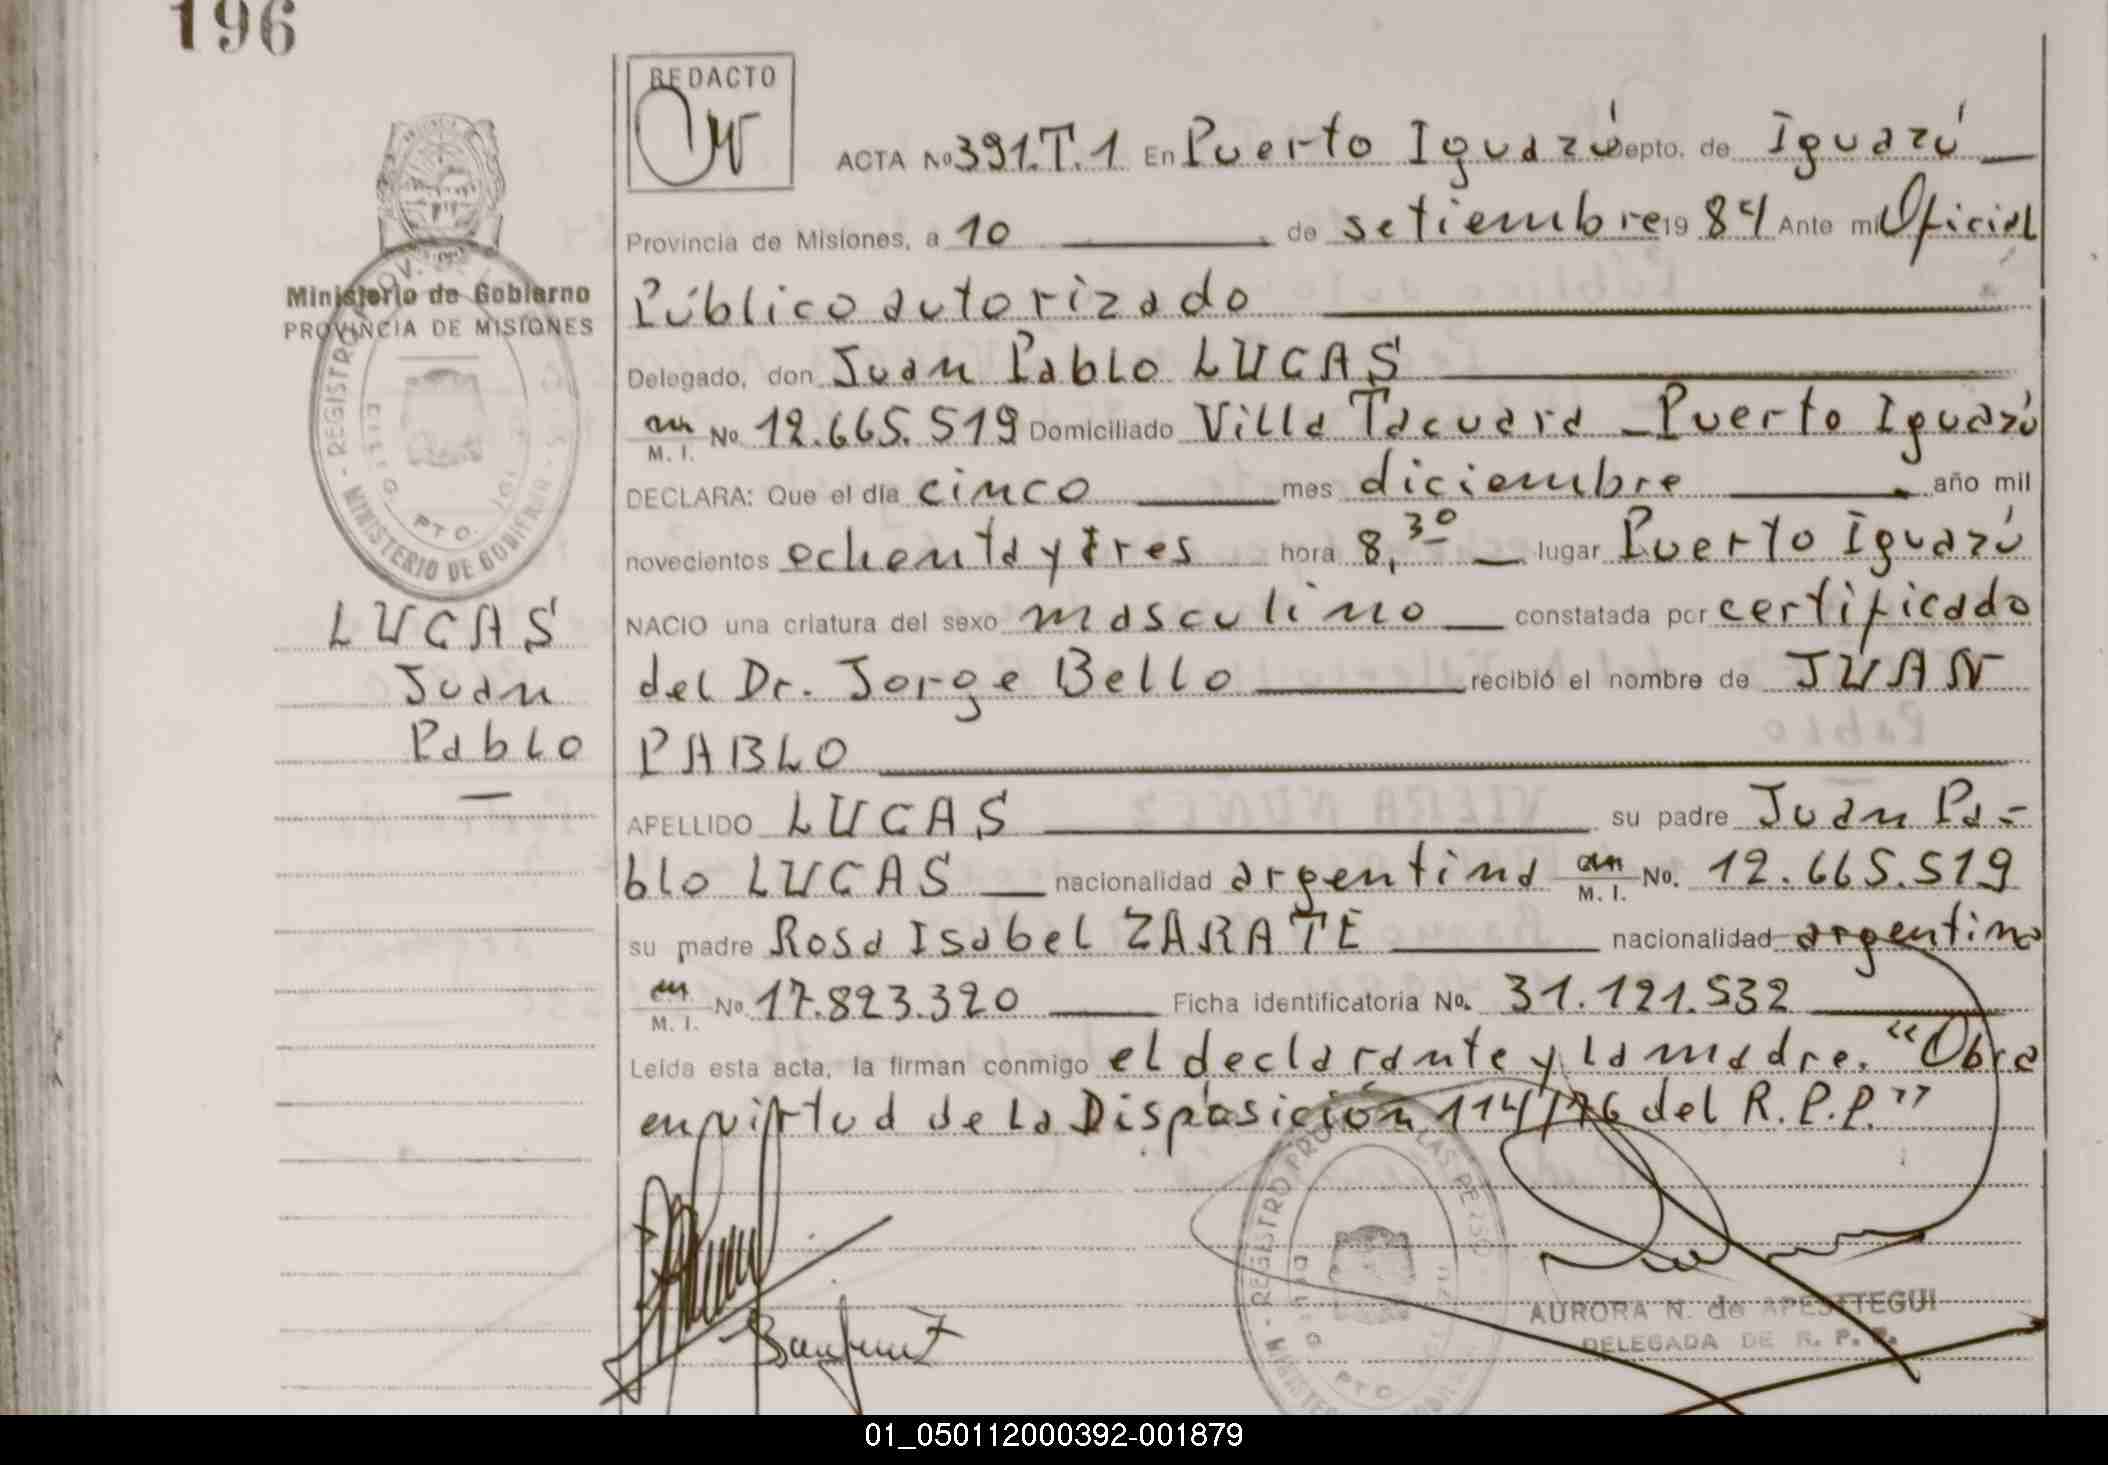 196
REDACTO
ACTA Nº 391.T.1 En Puerto Iguazú Depto. de Iguazú
Provincia de Misiones, a 10 de setiembre 19 84 Ante mi Oficial
Público autorizado
Delegado, don Juan Pablo LUCAS
M. I. No 12.665.519 Domiciliado Villa Tacuara - Puerto Iguazú
DECLARA: Que el día cinco mes diciembre año mil
novecientos ochenta y tres hora 8,30 lugar Puerto Iguazú
NACIO una criatura del sexo masculino constatada por certificado
del Dr. Jorge Bello recibió el nombre de JUAN
PABLO
APELLIDO LUCAS su padre Juan Pa-
blo LUCAS nacionalidad argentina M. I. No. 12.665.519
su madre Rosa Isabel ZARATE nacionalidad argentina
M. I. No 17.823.320 Ficha identificatoria No. 31.121.532
Leída esta acta, la firman conmigo el declarante y la madre. "Obra
en virtud de la Disposición 114/76 del R.P.P."
AURORA N. de APESTTEGUI
DELEGADA DE R. P. P.
Ministerio de Gobierno
PROVINCIA DE MISIONES
REGISTRO PROV.
MINISTERIO DE GOBIERNO
PTO.
LUCAS
Juan
Pablo
REGISTRO PROV. LAS PERSO
PTO
01_050112000392-001879